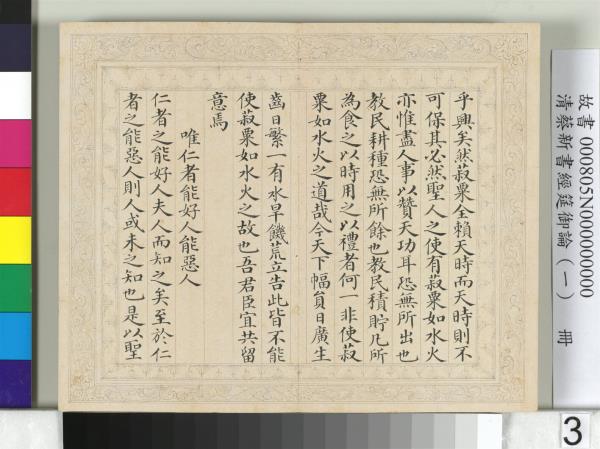 乎興矣然菽粟全賴天時而天時則不
可保其必然聖人之使有菽粟如水火
亦惟盡人事以贊天功耳恐無所出也
教民耕種恐無所餘也教民積貯凡所
為食之以時用之以禮者何一非使菽
粟如水火之道哉今天下幅員日廣生
齒日繁一有水旱饑荒立告此皆不能
使菽粟如水火之故也吾君臣宜共留
意焉
唯仁者能好人能惡人
仁者之能好人夫人而知之矣至於仁
者之能惡人則人或未之知也是以聖
故書000805N000000000
清蔡新書經筵御論(一) 冊
3